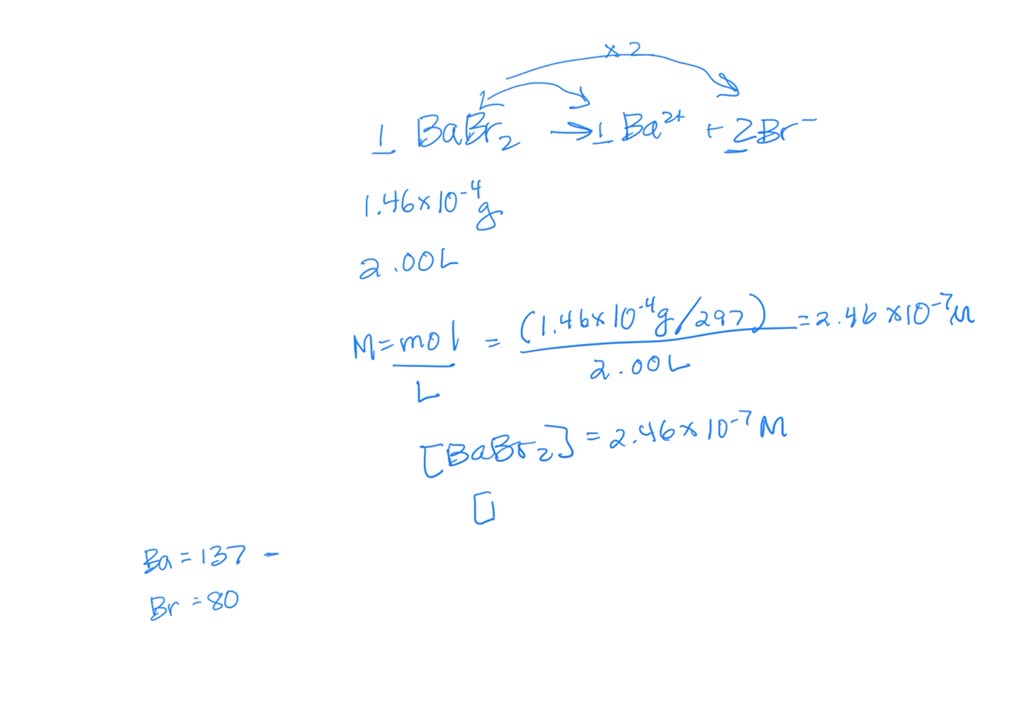 × 2
1 BaBr₂ → 1 Ba²⁺ + 2Br⁻
1.46×10⁻⁴g
2.00L
M = mol/L = (1.46×10⁻⁴g/297)/2.00L = 2.46×10⁻⁷M
[BaBr₂] = 2.46×10⁻⁷M
[
Ba = 137 -
Br = 80